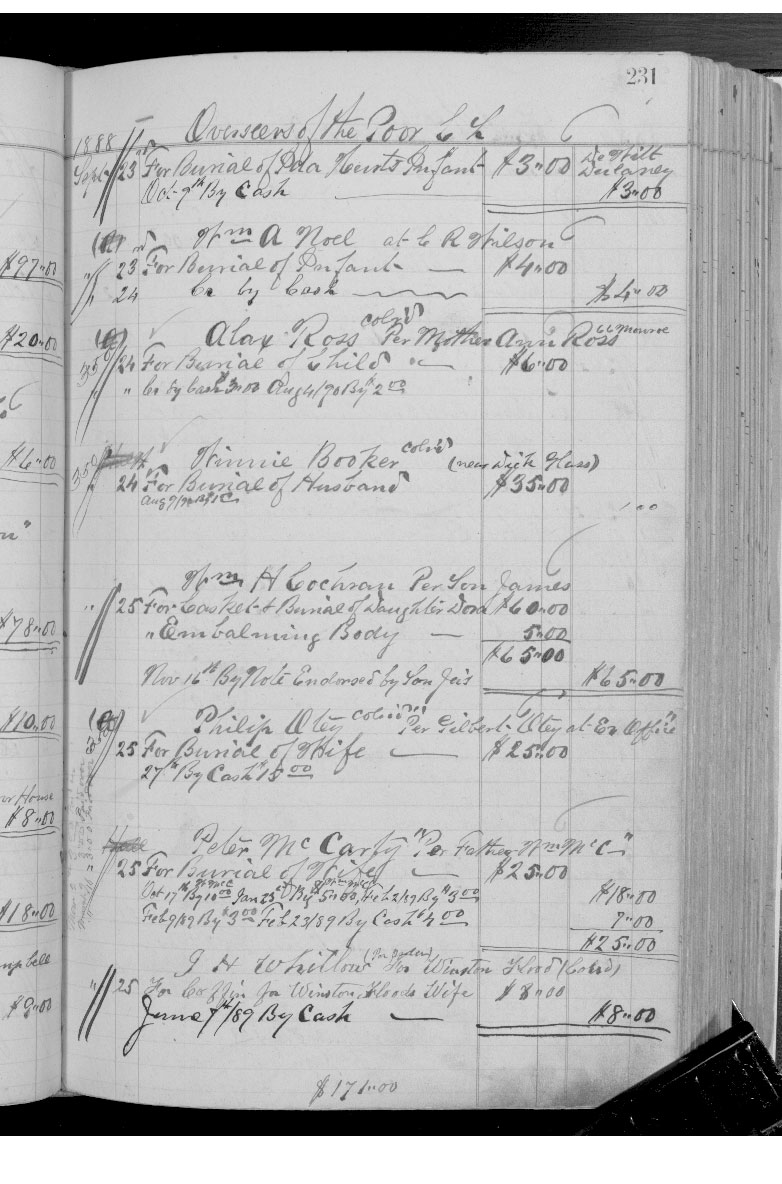 231
1888 Overseers of the Poor C H
Sept 23rd For Burial of Ada Hunts Infant $3"00 De Witt Dulaney
Oct 9th By Cash $3"00
Wm A Noel at C R Wilson
" 23rd For Burial of Infant $4"00
" 24 Cr by Cash $4"00
Alax Ross Colrd Per Mother Ann Ross 66 Monroe
350 24 For Burial of Child $6"00
" " Cr by Cash $3"00 Aug 4/90 By $2 00
Winnie Booker Colrd (near Dick Glass)
350 24 For Burial of Husband $35"00
Wm H Cochran Per Son James
" 25 For Casket & Burial of Daughter Dora $60"00
" Embalming Body 5"00
$65"00
Nov 16th By Note Endorsed by Son Jas $65"00
Philip Otey Colrd "Per Gilbert Otey at Ex Office"
25 For Burial of Wife $25"00
27th By Cash $15 00
Peter McCarty "Per Father Wm McC"
25 For Burial of Wife $25"00
Oct 17th By 10 00 Jan 23rd By $5"00, Feb 2/89 By $3 00 $18"00
Feb 9/89 By $3 00 Feb 23/89 By Cash $4 00 7"00
$25"00
J N Whitlow For Winston Flood (Colrd)
" 25 For Coffin for Winston Floods Wife $8"00
June 7th/89 By Cash $8"00
$171"00
$97"00
$20"00
$6"00
$78"00
$10"00
oor House
$8"00
$18"00
mpbell
$9"00